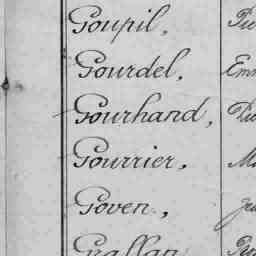 Goupil,
Gourdel,
Gourhand,
Gourrier,
Goven,
Grallan